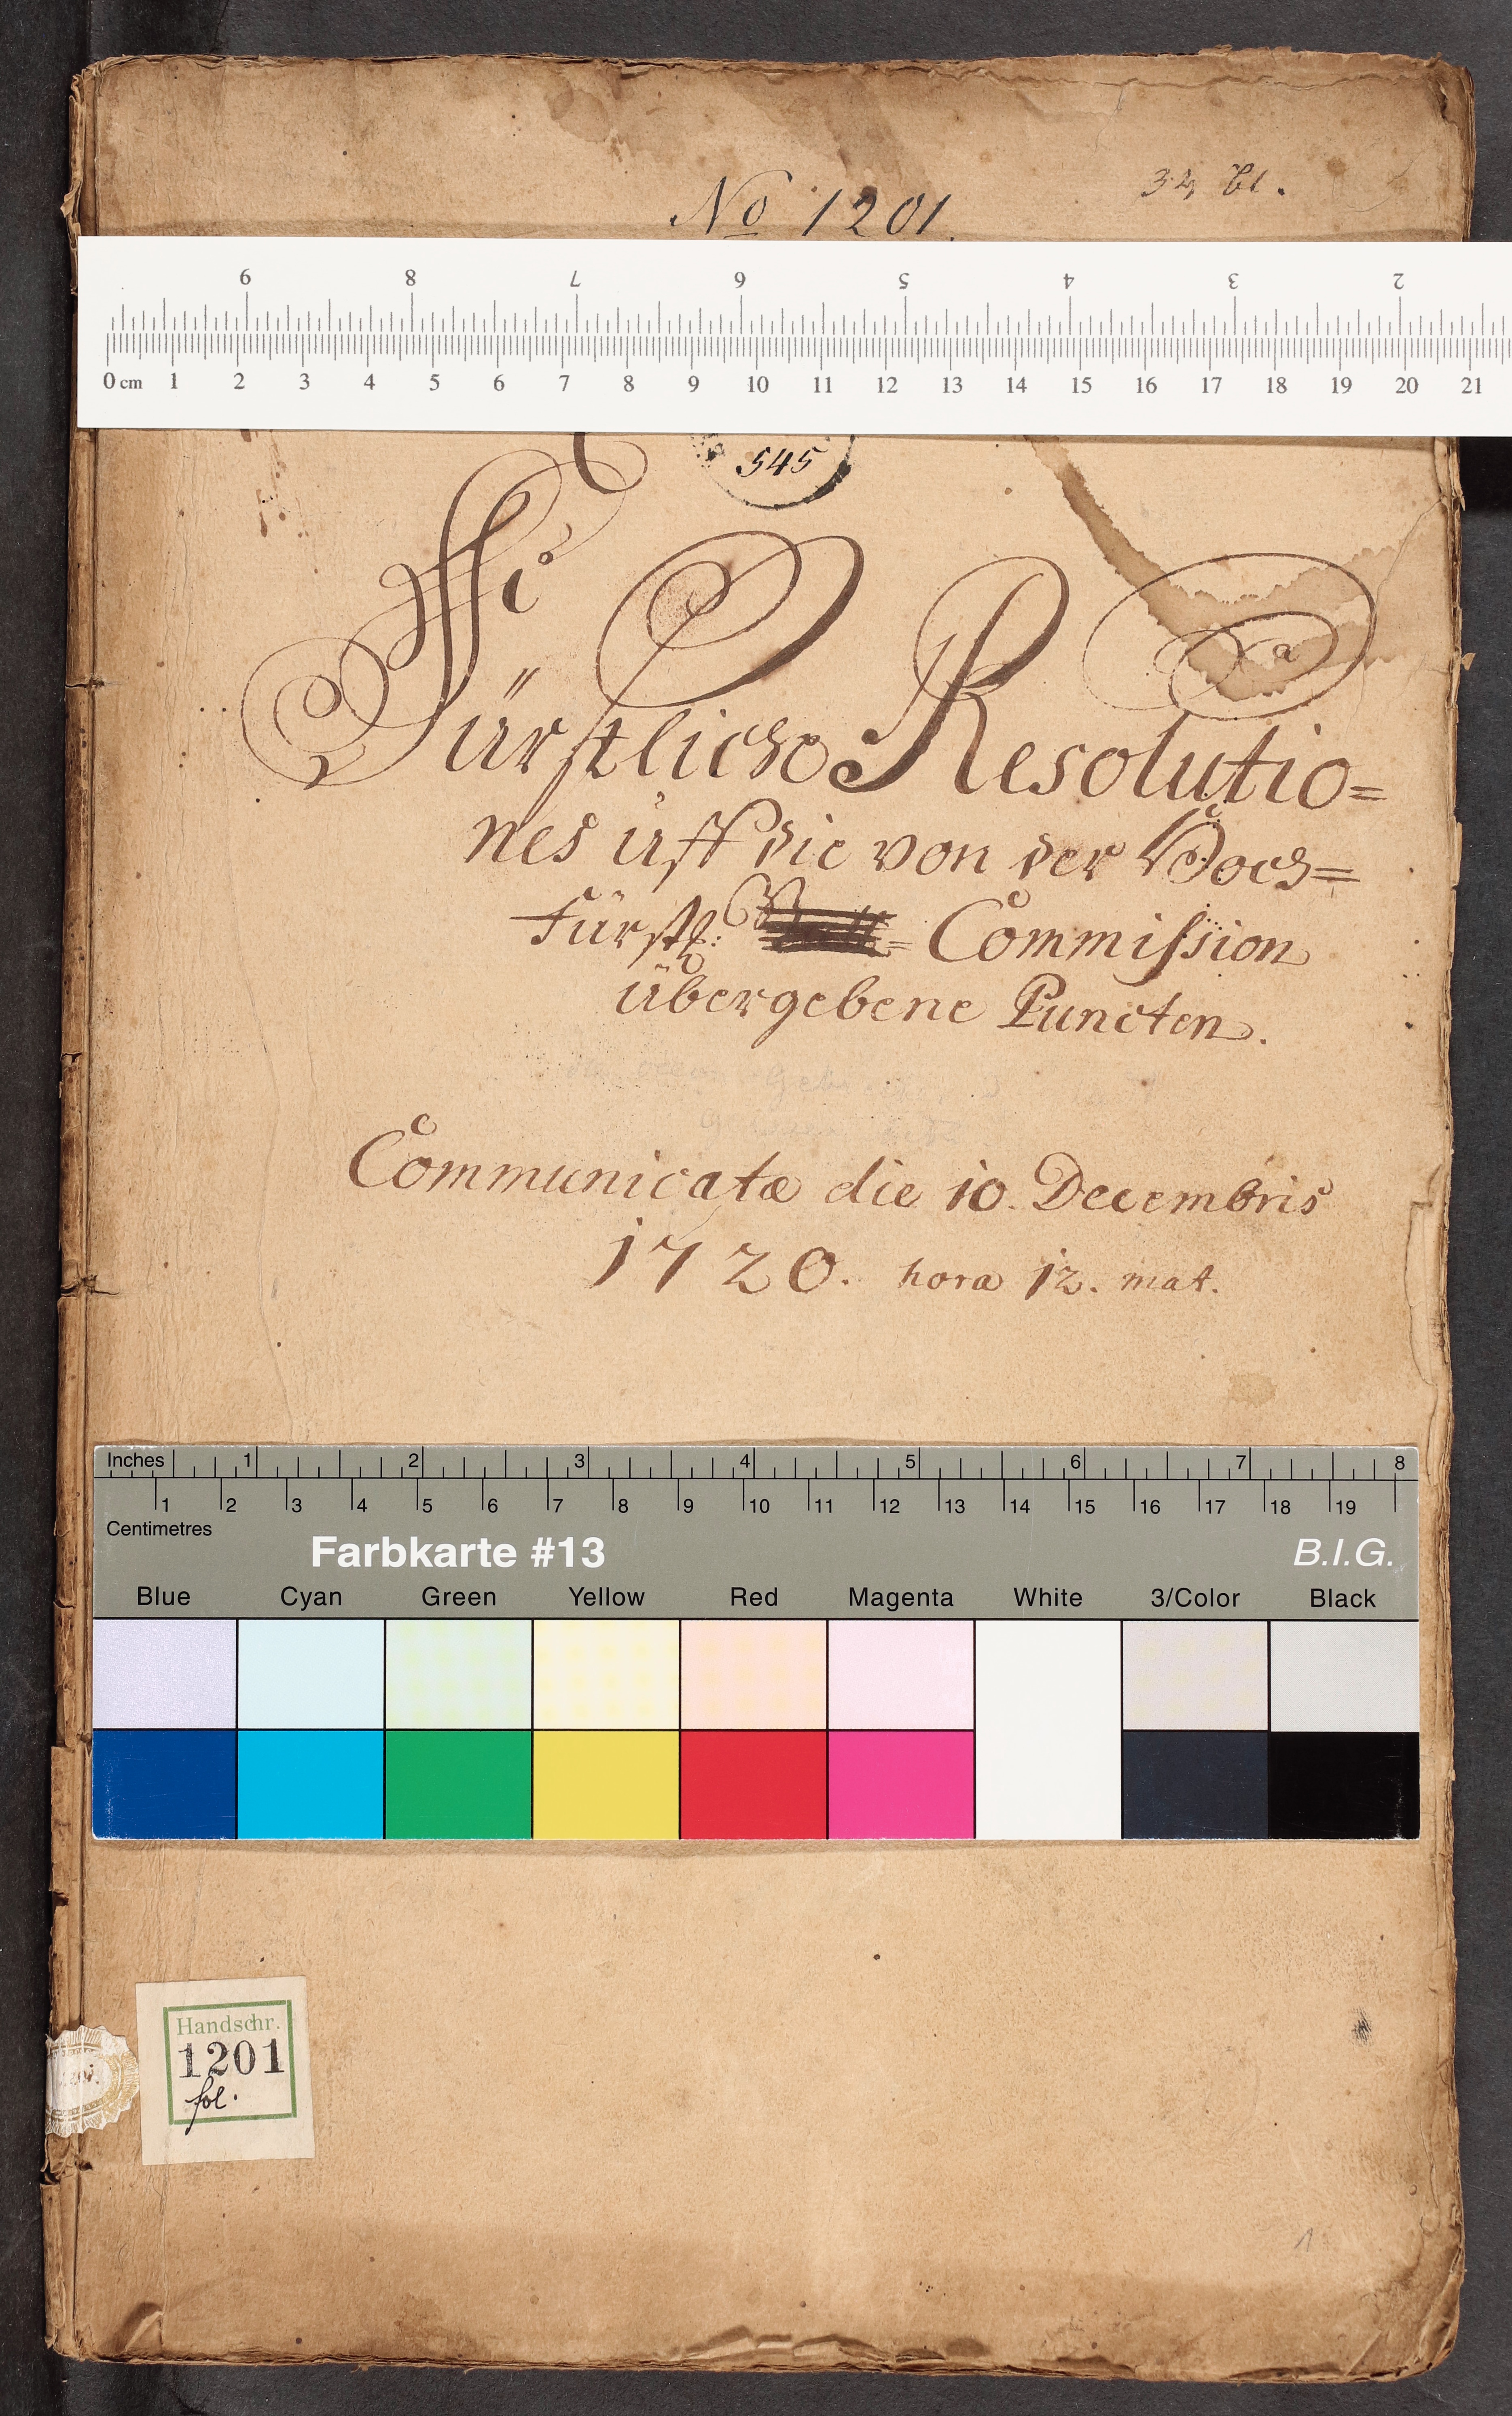 No 1201.
32 bl.
9 8 7 6 5 4 3 2
0 cm 1 2 3 4 5 6 7 8 9 10 11 12 13 14 15 16 17 18 19 20 21
545
Fürstliche Resolutio=
nes uff die von der Hoch=
Fürstl: = Commission
übergebene Puncten.
Communicatæ die 10. Decembris
1720. hora 12. mat.
Inches 1 2 3 4 5 6 7 8
1 2 3 4 5 6 7 8 9 10 11 12 13 14 15 16 17 18 19
Centimetres
Farbkarte #13 B.I.G.
Blue Cyan Green Yellow Red Magenta White 3/Color Black
Handschr.
1201
fol.
1